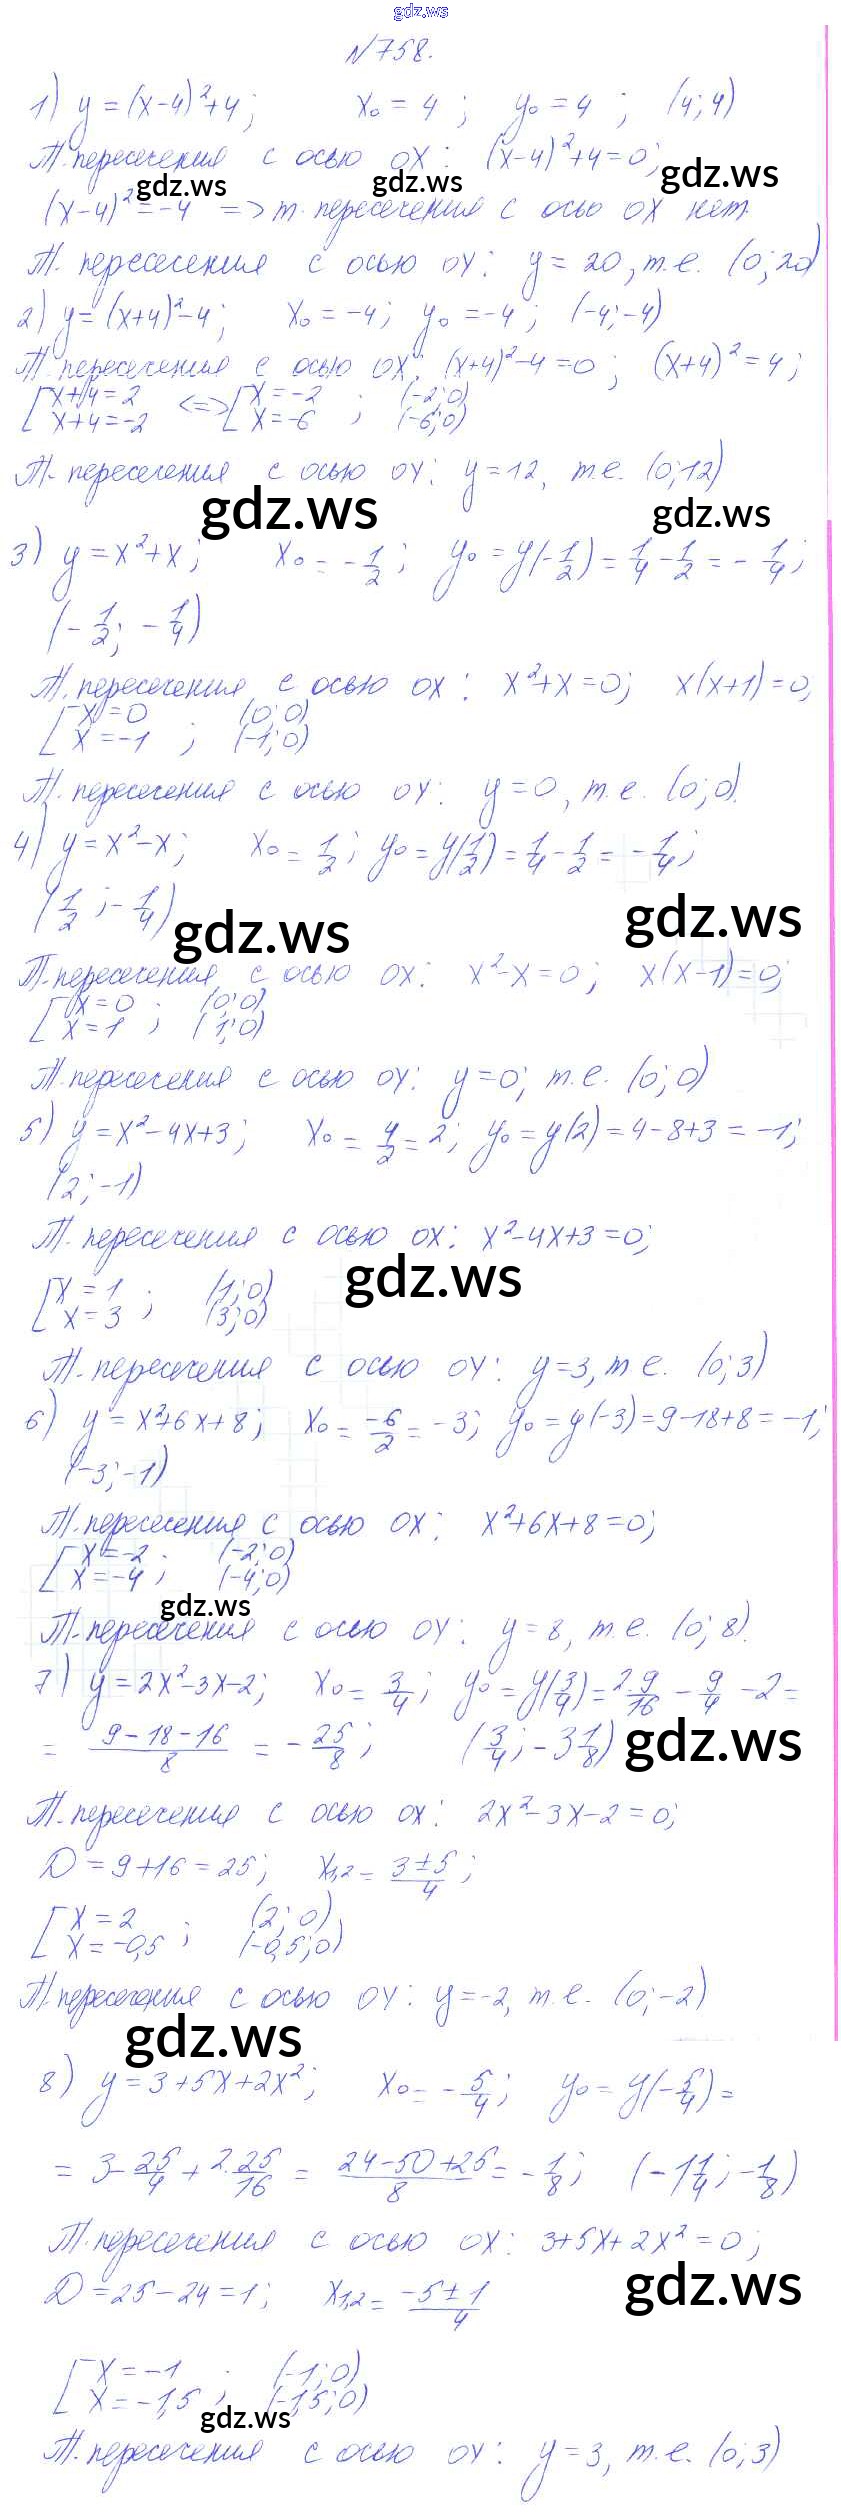 gdz.ws
N758.
1) y = (x-4)²+4; x₀ = 4; y₀ = 4; (4; 4)
Т. пересечения с осью OX: (x-4)²+4=0;
gdz.ws gdz.ws gdz.ws
(x-4)²=-4 => т. пересечения с осью OX нет.
Т. пересечения с осью OY: y = 20, т.е. (0; 20)
2) y = (x+4)²-4; x₀ = -4; y₀ = -4; (-4; -4)
Т. пересечения с осью OX: (x+4)²-4=0; (x+4)²=4;
[x+4=2 <=> [x=-2 ; (-2; 0)
x+4=-2 x=-6 (-6; 0)
Т. пересечения с осью OY: y=12, т.е. (0; 12)
gdz.ws gdz.ws
3) y = x²+x; x₀ = -1/2; y₀ = y(-1/2) = 1/4 - 1/2 = -1/4;
(-1/2; -1/4)
Т. пересечения с осью OX: x²+x=0; x(x+1)=0,
[x=0 ; (0; 0)
x=-1 (-1; 0)
Т. пересечения с осью OY: y=0, т.е. (0; 0).
4) y = x²-x; x₀ = 1/2; y₀ = y(1/2) = 1/4 - 1/2 = -1/4;
(1/2; -1/4)
gdz.ws gdz.ws
Т. пересечения с осью OX: x²-x=0; x(x-1)=0;
[x=0 ; (0; 0)
x=1 (1; 0)
Т. пересечения с осью OY: y=0; т.е. (0; 0)
5) y = x²-4x+3; x₀ = 4/2 = 2; y₀ = y(2) = 4-8+3 = -1;
(2; -1)
Т. пересечения с осью OX: x²-4x+3=0;
gdz.ws
[x=1 ; (1; 0)
x=3 (3; 0)
Т. пересечения с осью OY: y=3, т.е. (0; 3)
6) y = x²+6x+8; x₀ = -6/2 = -3; y₀ = y(-3) = 9-18+8 = -1;
(-3; -1)
Т. пересечения с осью OX: x²+6x+8=0;
[x=-2 ; (-2; 0)
x=-4 (-4; 0)
gdz.ws
Т. пересечения с осью OY: y=8, т.е. (0; 8).
7) y = 2x²-3x-2; x₀ = 3/4; y₀ = y(3/4) = 2·9/16 - 9/4 - 2 =
= (9-18-16)/8 = -25/8; (3/4; -3 1/8)
gdz.ws
Т. пересечения с осью OX: 2x²-3x-2=0;
D = 9+16 = 25; x₁,₂ = (3±5)/4;
[x=2 ; (2; 0)
x=-0,5 (-0,5; 0)
Т. пересечения с осью OY: y=-2, т.е. (0; -2)
gdz.ws
8) y = 3+5x+2x²; x₀ = -5/4; y₀ = y(-5/4) =
= 3 - 25/4 + 2·25/16 = (24-50+25)/8 = -1/8; (-1 1/4; -1/8)
Т. пересечения с осью OX: 3+5x+2x²=0;
D = 25-24 = 1; x₁,₂ = (-5±1)/4
gdz.ws
[x=-1 ; (-1; 0)
x=-1,5 (-1,5; 0)
gdz.ws
Т. пересечения с осью OY: y=3, т.е. (0; 3)